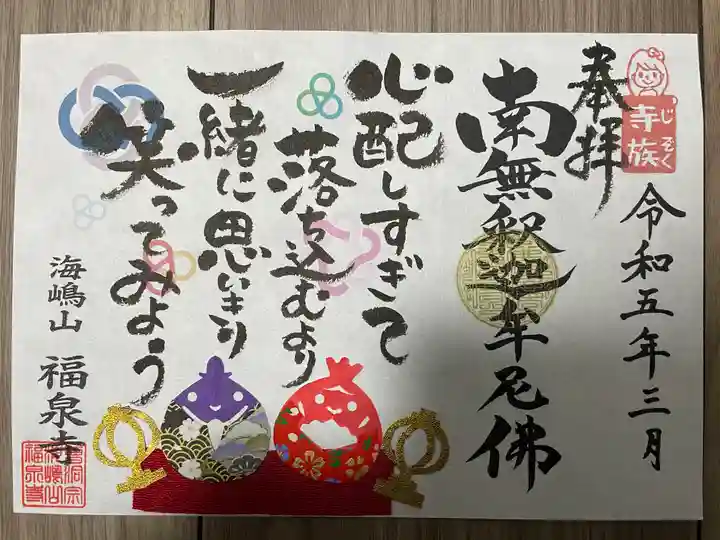 じぞく
寺族
奉拝
令和五年三月
南無釈迦牟尼佛
心配しすぎて
落ち込むより
一緒に思いきり
笑ってみよう
海嶋山
福泉寺
曹洞宗
海嶋山
福泉寺